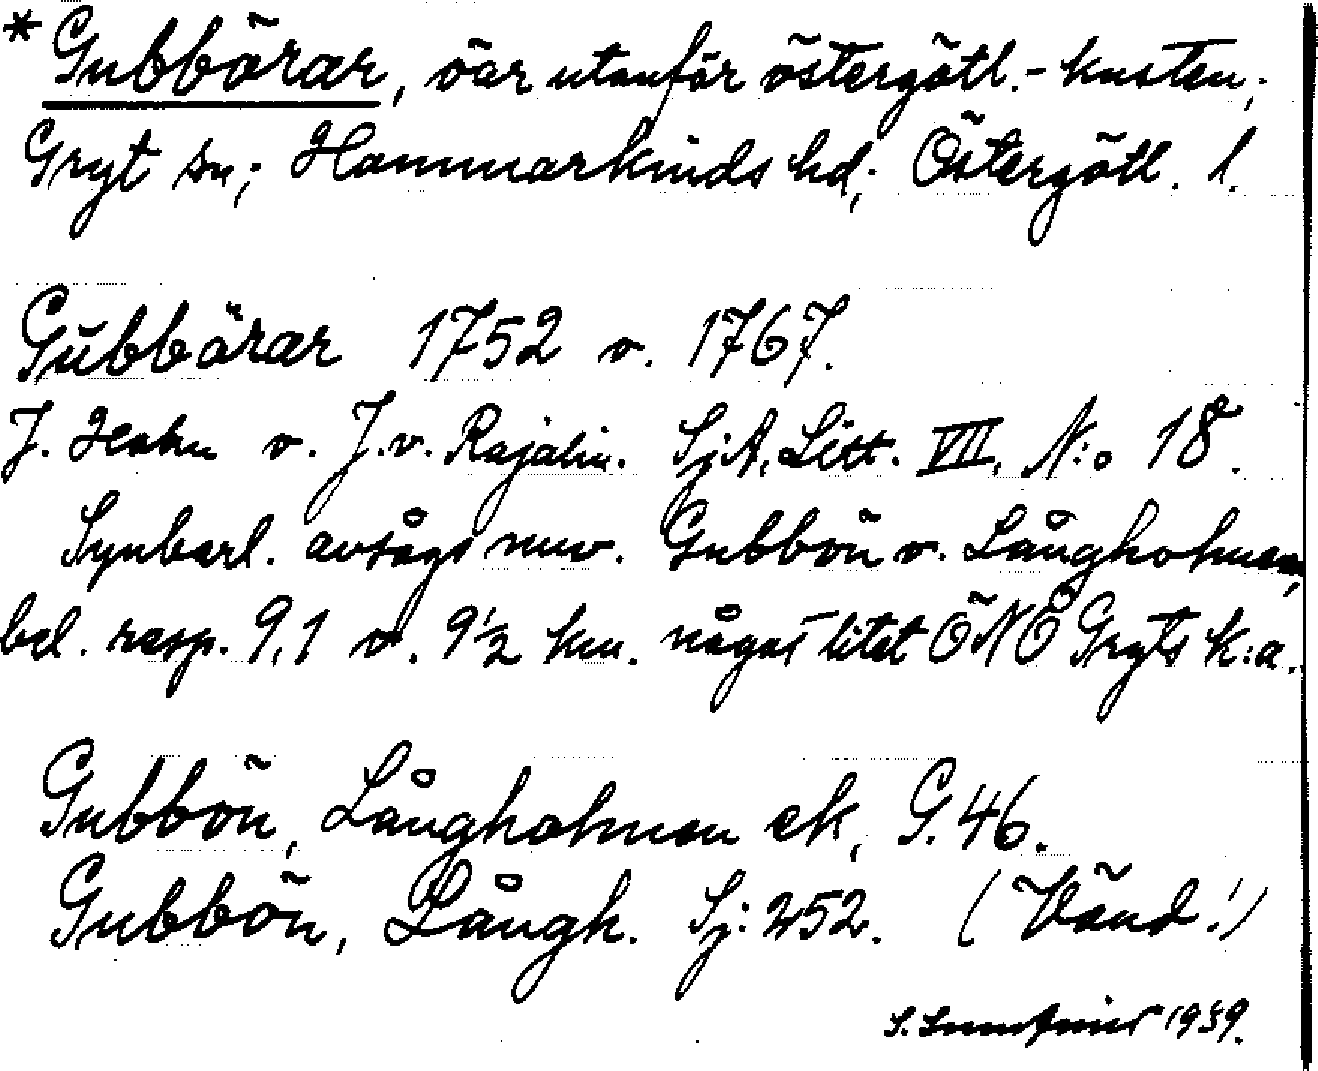 * Gubbörar, öar utanför östergötl.-kusten;
Gryt sn; Hammarkinds hd; Östergötl. l.
Gubbörar 1752 o. 1767.
J. Hahn o. J. v. Rajalin. SjA, Litt. VII, N:o 18.
Synbarl. avsågs nuv. Gubbön o. Långholmen,
bel. resp. 9,1 o. 9½ km. något litet ÖNÖ Gryts k:a.
Gubbön, Långholmen ek, G. 46.
Gubbön, Långh. Sj: 252. (Vänd!)
S. 1939.